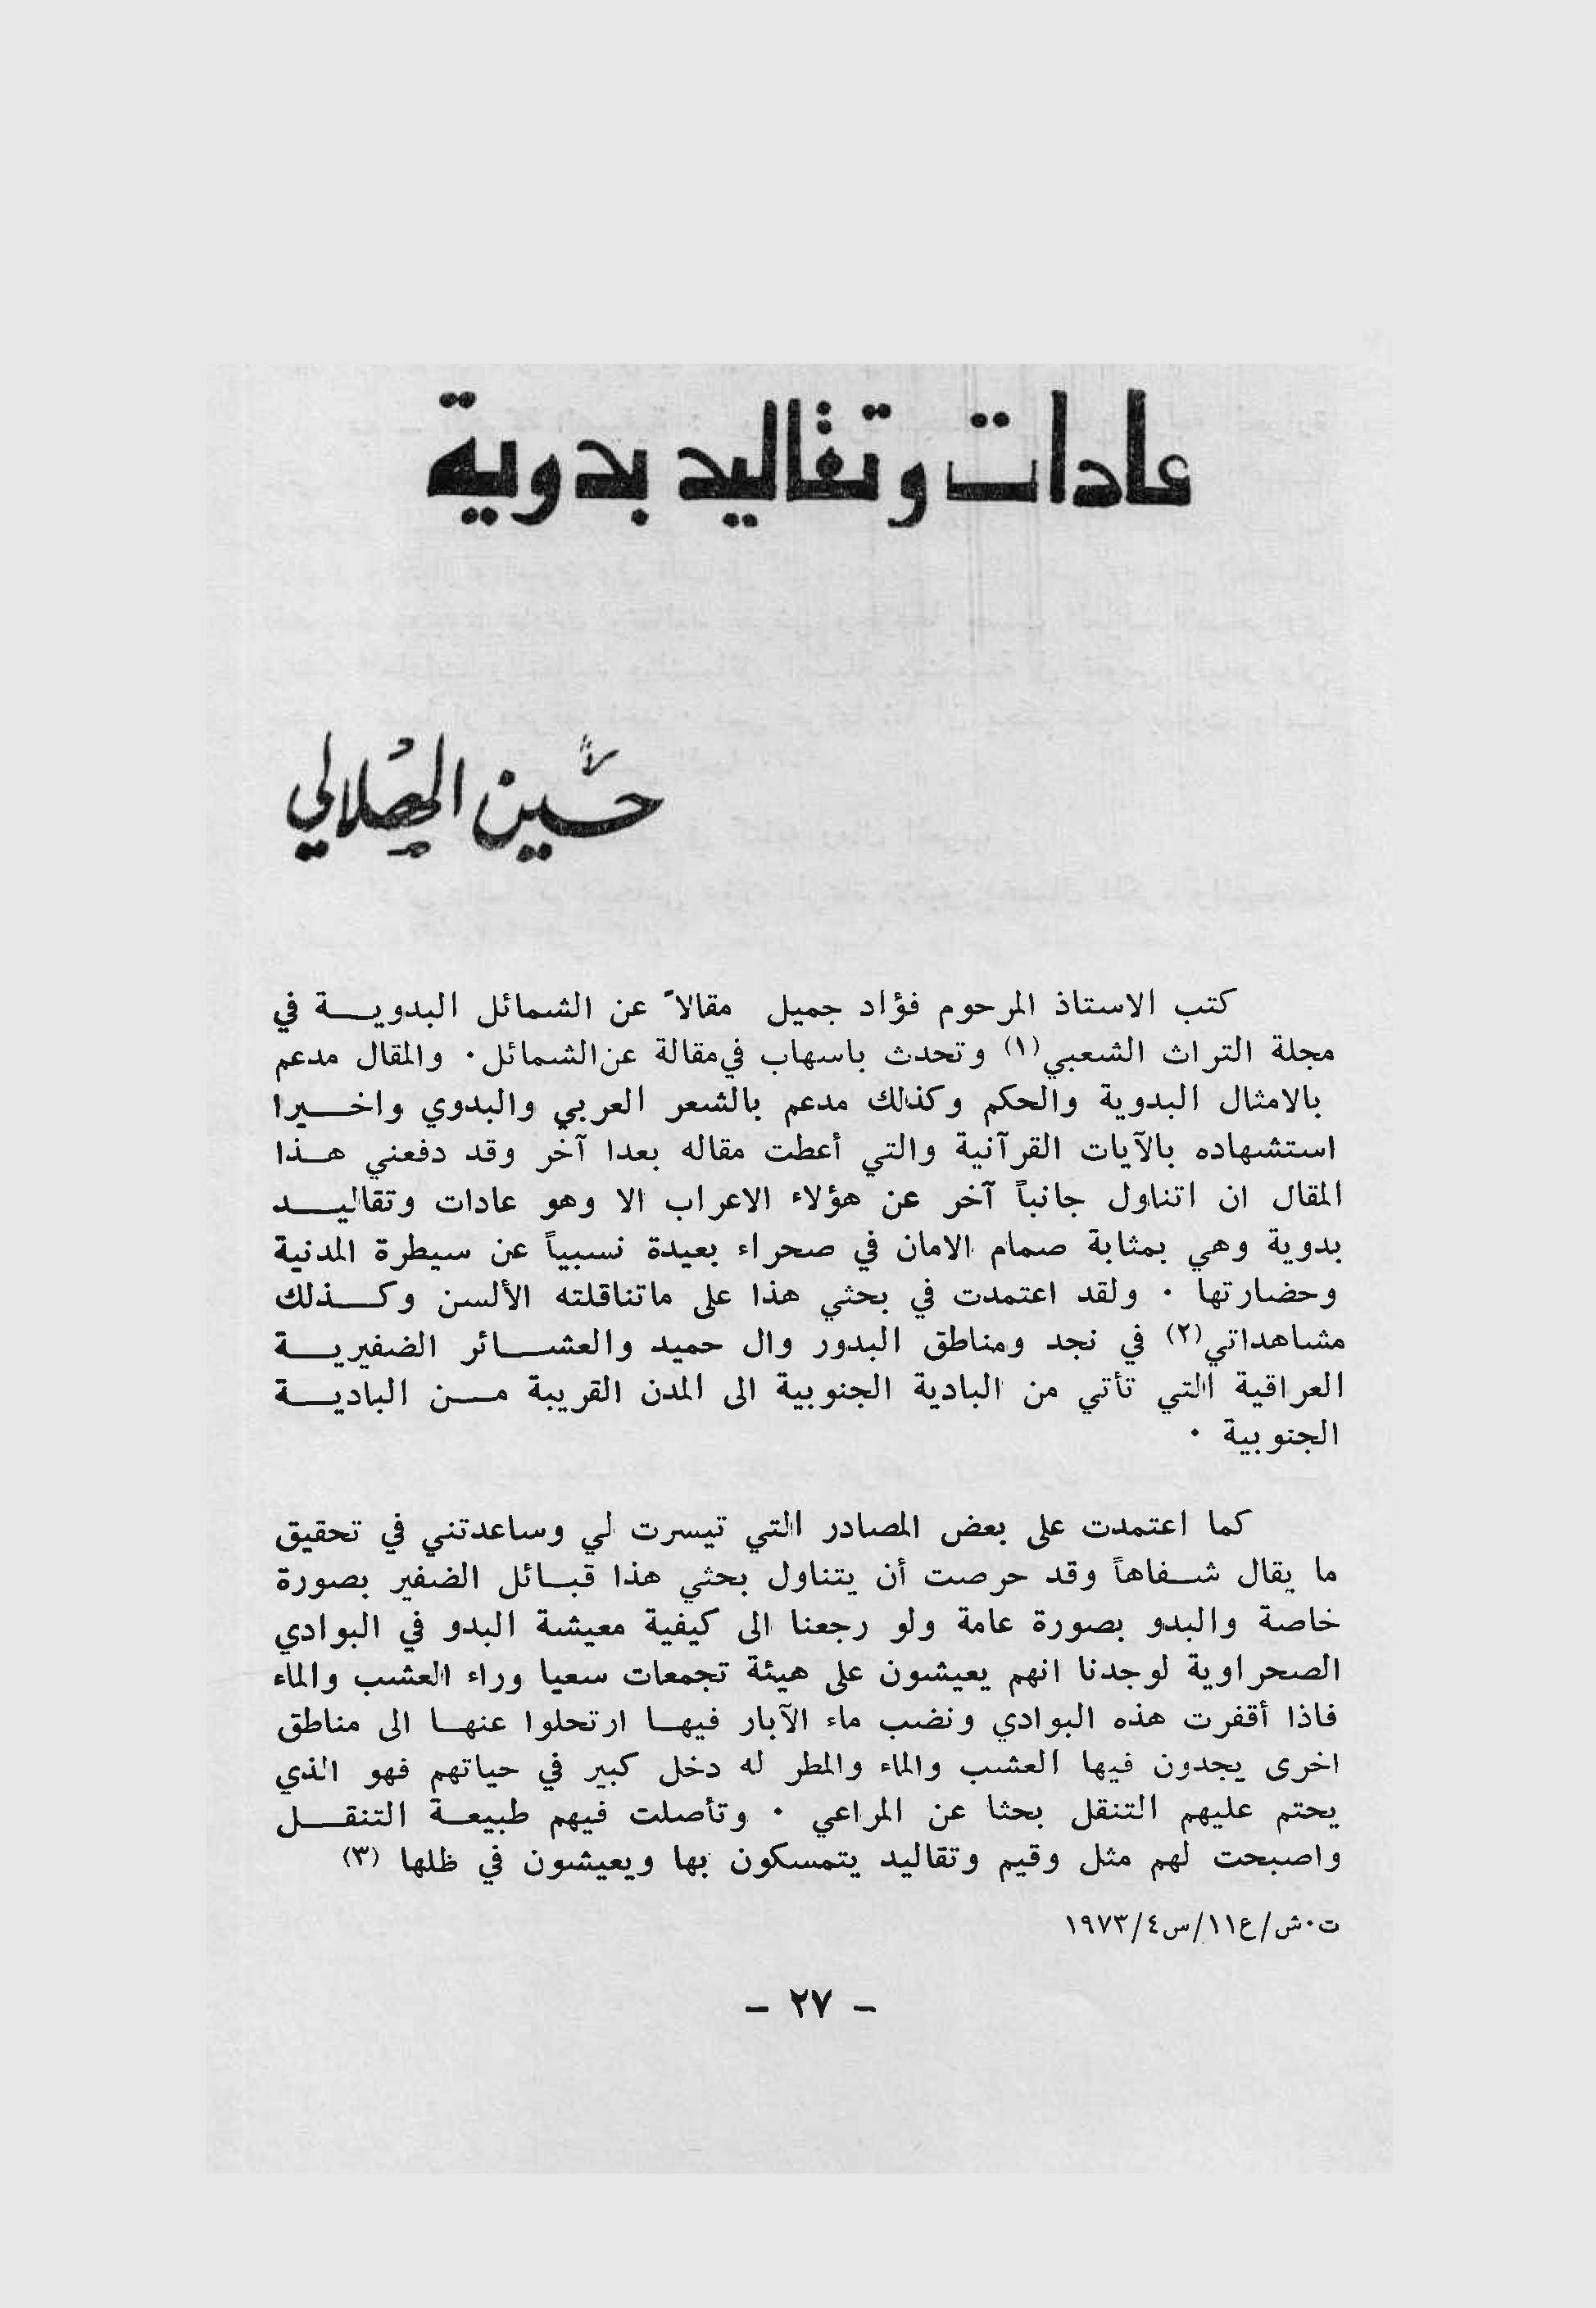 عادات وتقاليد بدوية
حسين الهلالي
كتب الاستاذ المرحوم فؤاد جميل مقالاً عن الشمائل البدويـــة في
مجلة التراث الشعبي(١) وتحدث باسهاب في مقالة عن الشمائل ٠ والمقال مدعم
بالامثال البدوية والحكم وكذلك مدعم بالشعر العربي والبدوي واخـــيرا
استشهاده بالآيات القرآنية والتي أعطت مقاله بعدا آخر وقد دفعني هــذا
المقال ان اتناول جانباً آخر عن هؤلاء الاعراب الا وهو عادات وتقاليـــد
بدوية وهي بمثابة صمام الامان في صحراء بعيدة نسبياً عن سيطرة المدنية
وحضارتها ٠ ولقد اعتمدت في بحثي هذا على ماتناقلته الألسن وكـــذلك
مشاهداتي(٢) في نجد ومناطق البدور وال حميد والعشـــائر الضفيريـــة
العراقية التي تأتي من البادية الجنوبية الى المدن القريبة مـــن الباديـــة
الجنوبية ٠
كما اعتمدت على بعض المصادر التي تيسرت لي وساعدتني في تحقيق
ما يقال شــفاهاً وقد حرصت أن يتناول بحثي هذا قبــائل الضفير بصورة
خاصة والبدو بصورة عامة ولو رجعنا الى كيفية معيشة البدو في البوادي
الصحراوية لوجدنا انهم يعيشون على هيئة تجمعات سعيا وراء العشب والماء
فاذا أقفرت هذه البوادي ونضب ماء الآبار فيهــا ارتحلوا عنهــا الى مناطق
اخرى يجدون فيها العشب والماء والمطر له دخل كبير في حياتهم فهو الذي
يحتم عليهم التنقل بحثا عن المراعي ٠ وتأصلت فيهم طبيعــة التنقـــل
واصبحت لهم مثل وقيم وتقاليد يتمسكون بها ويعيشون في ظلها (٣)
ت٠ش/ع١١/س٤/١٩٧٣
– ٢٧ –